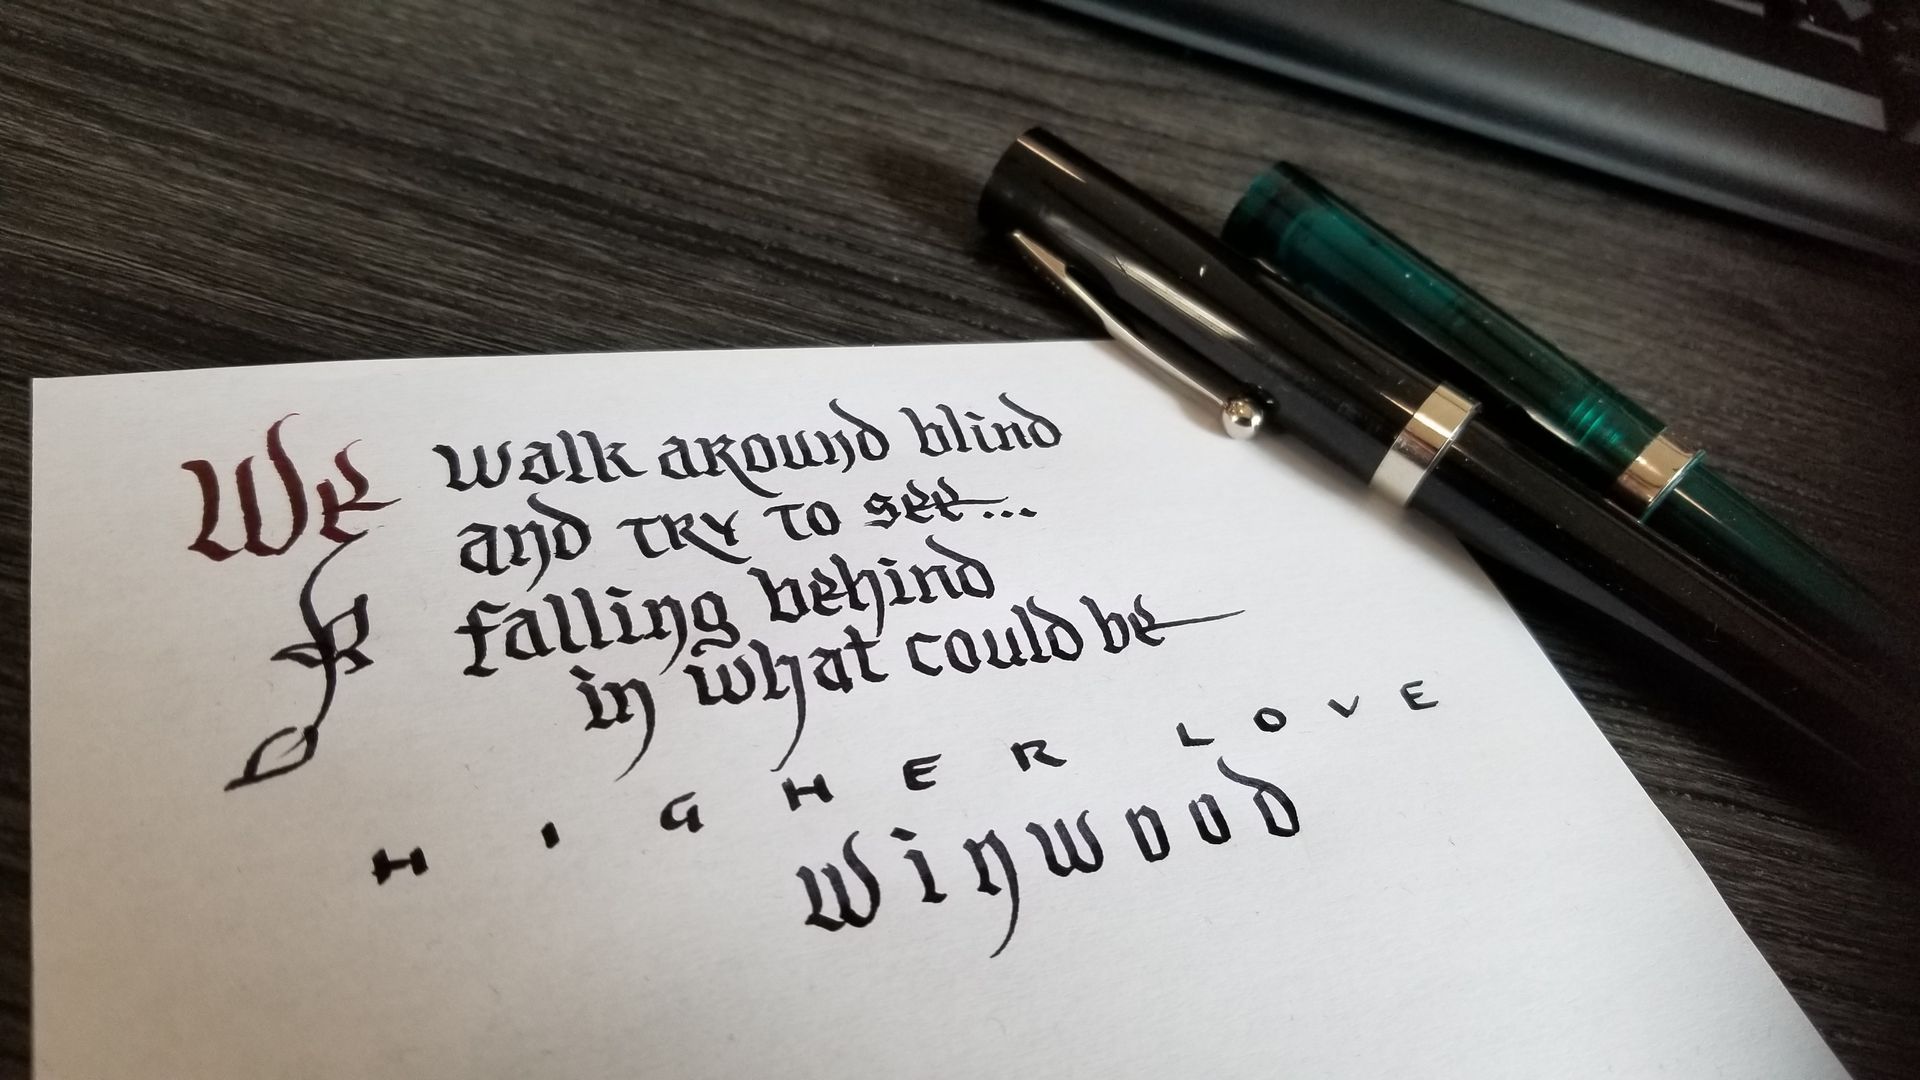 We walk around blind
and TRY TO see...
falling behind
in what could be
HIGHER LOVE
Winwood